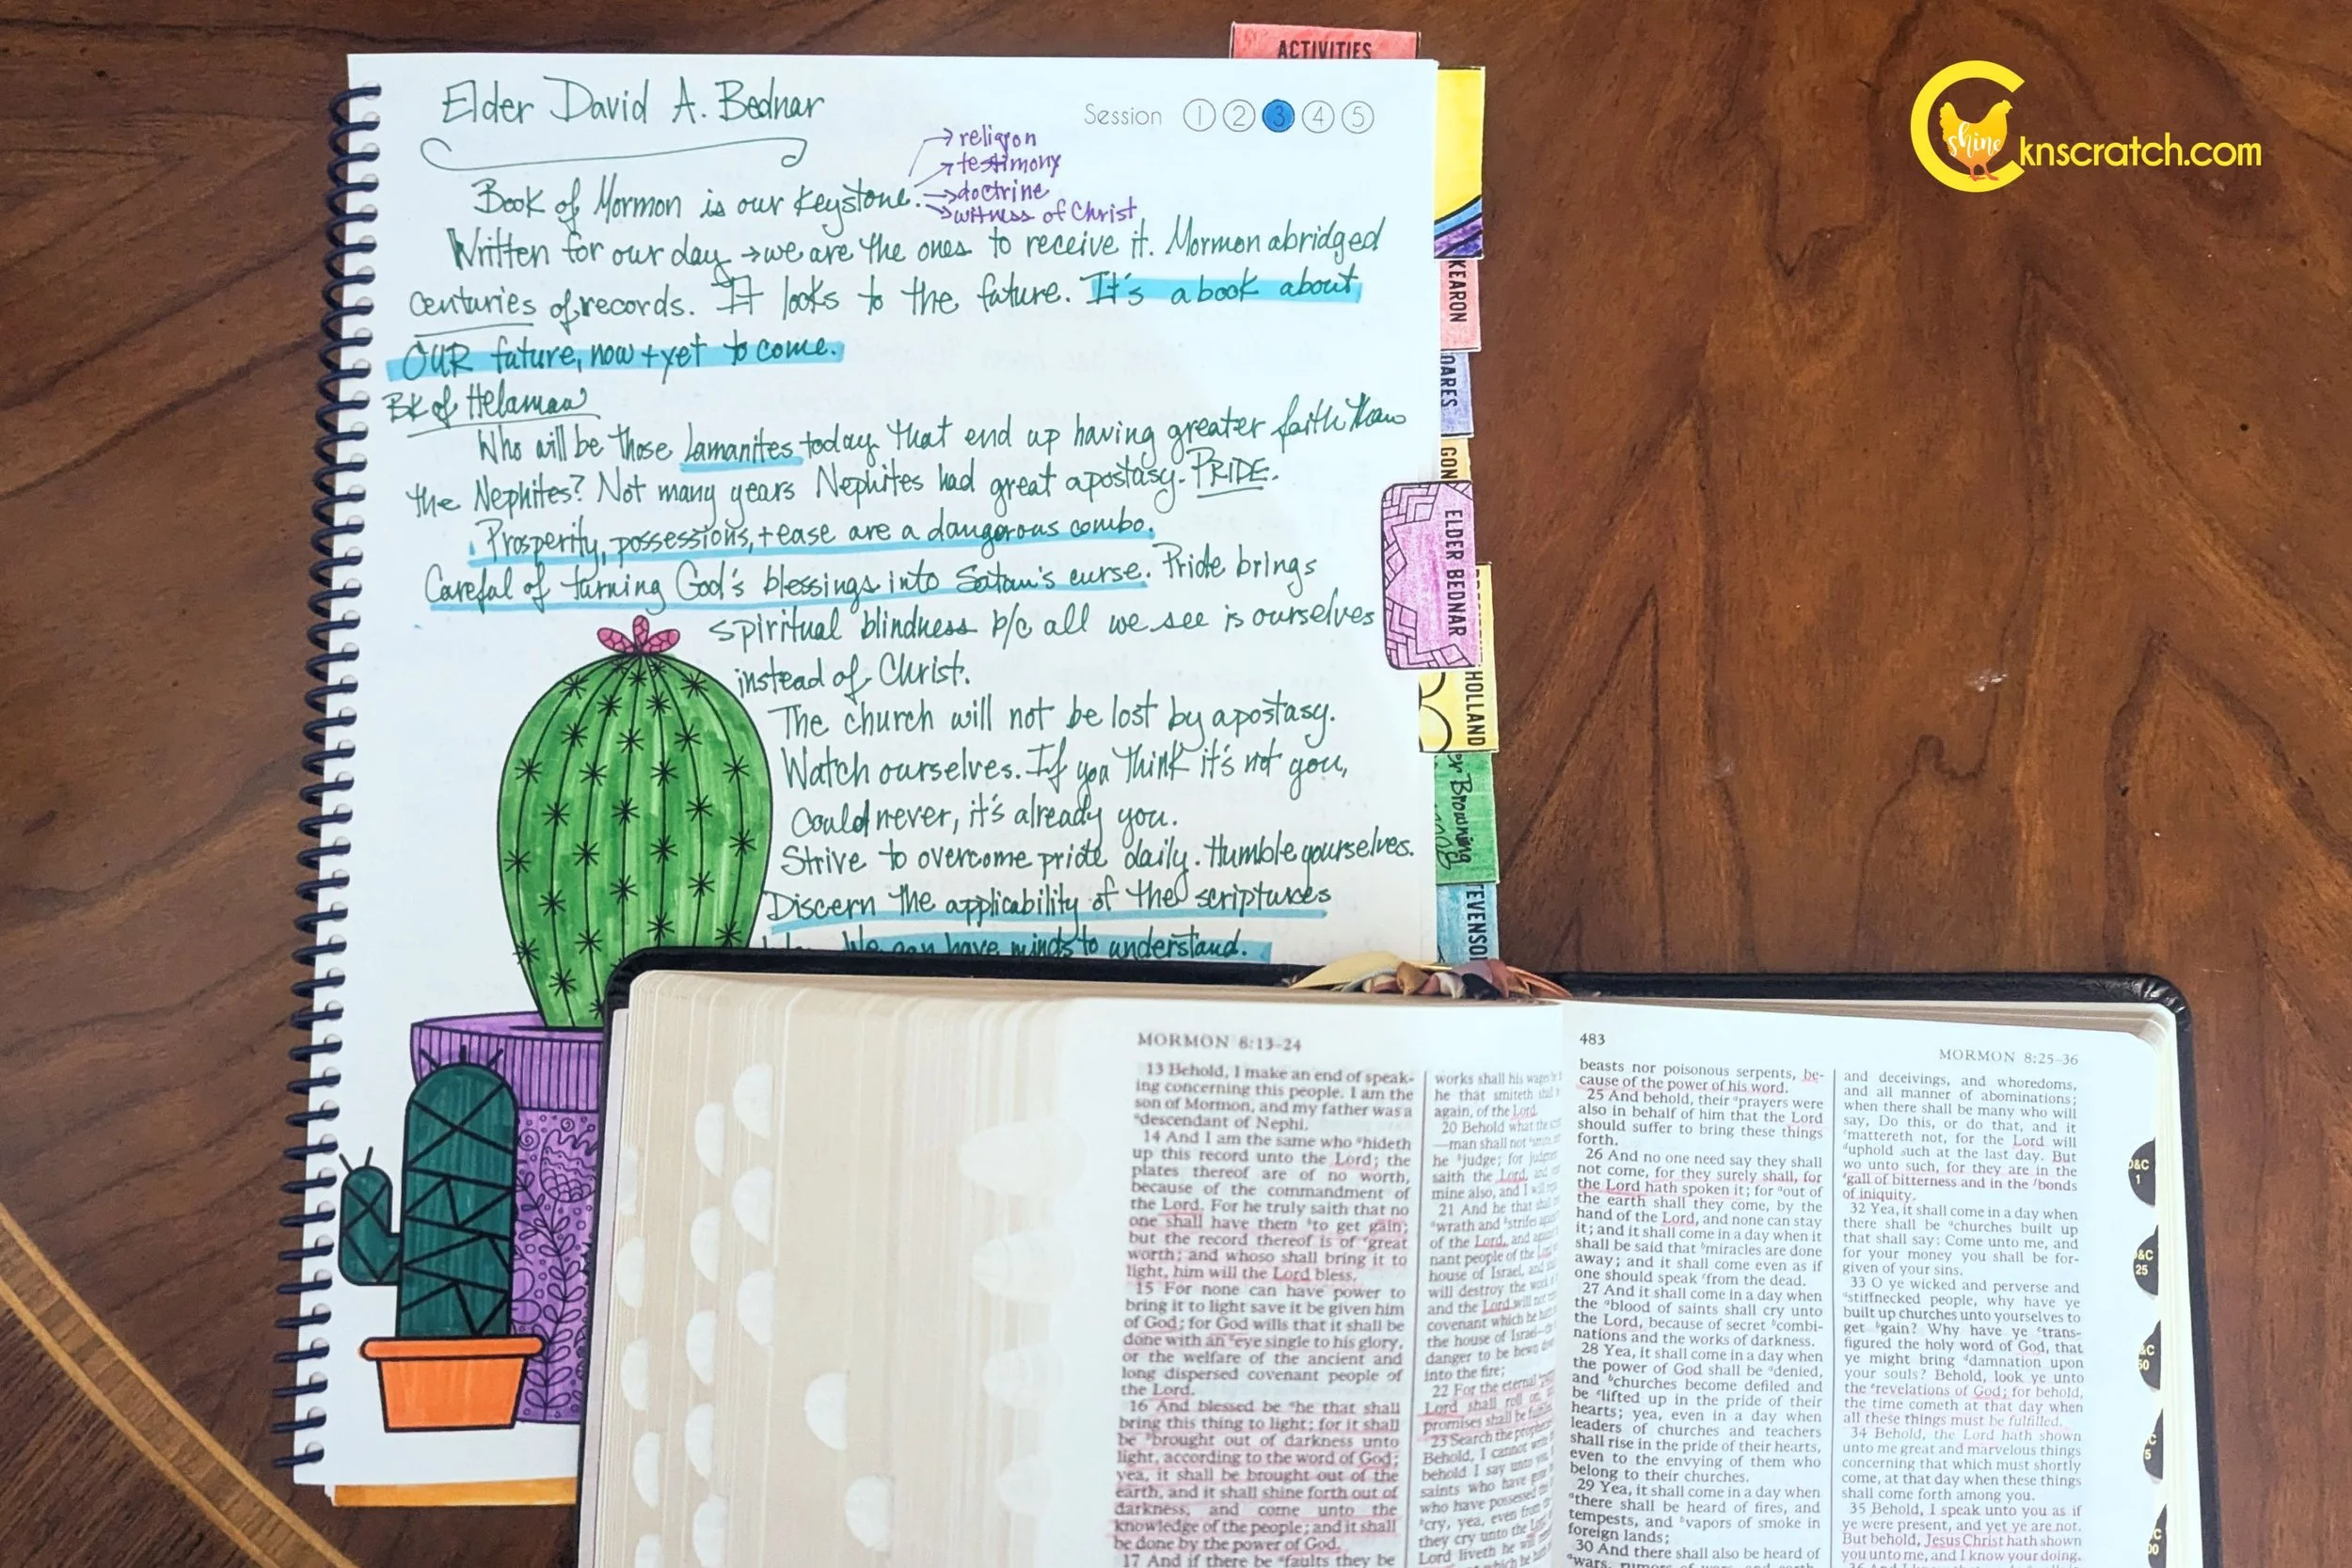 ACTIVITIES
Elder David A. Bednar
Session 1 2 3 4 5
religion
testimony
doctrine
witness of Christ
Book of Mormon is our keystone.
Written for our day → we are the ones to receive it. Mormon abridged
centuries of records. It looks to the future. It's a book about
OUR future, now + yet to come.
BK of Helaman
Who will be those Lamanites today that end up having greater faith than
the Nephites? Not many years Nephites had great apostasy - PRIDE.
Prosperity, possessions, + ease are a dangerous combo.
Careful of turning God's blessings into Satan's curse. Pride brings
spiritual blindness b/c all we see is ourselves
instead of Christ.
The church will not be lost by apostasy.
Watch ourselves. If you think it's not you,
could never, it's already you.
Strive to overcome pride daily. Humble yourselves.
Discern the applicability of the scriptures
We can have minds to understand.
KEARON
OARES
GON
ELDER BEDNAR
HOLLAND
er Browning
EVENSO
shine
cknscratch.com
MORMON 8:13–24
13 Behold, I make an end of speak-
ing concerning this people. I am the
son of Mormon, and my father was a
descendant of Nephi.
14 And I am the same who hideth
up this record unto the Lord; the
plates thereof are of no worth,
because of the commandment of
the Lord. For he truly saith that no
one shall have them to get gain;
but the record thereof is of great
worth; and whoso shall bring it to
light, him will the Lord bless.
15 For none can have power to
bring it to light save it be given him
of God; for God wills that it shall be
done with an eye single to his glory,
or the welfare of the ancient and
long dispersed covenant people of
the Lord.
16 And blessed be he that shall
bring this thing to light; for it shall
be brought out of darkness unto
light, according to the word of God;
yea, it shall be brought out of the
earth, and it shall shine forth out of
darkness, and come unto the
knowledge of the people; and it shall
be done by the power of God.
17 And if there be faults they be
works shall his wages
he that smiteth
again, of the Lord.
20 Behold what the
—man shall not
he judge; for
saith the Lord, and
mine also, and I will
21 And he that
wrath and strifes
of the Lord, and
nant people of the
house of Israel, and
will destroy the work
and the Lord will not
covenant which he
the house of Israel
danger to be hewn
into the fire;
22 For the eternal
Lord shall roll on,
promises shall be
23 Search the
Behold, I cannot
behold I say unto
saints who have
who have possessed
cry, yea, even from
they cry unto the
Lord liveth he will
483
beasts nor poisonous serpents, be-
cause of the power of his word.
25 And behold, their prayers were
also in behalf of him that the Lord
should suffer to bring these things
forth.
26 And no one need say they shall
not come, for they surely shall, for
the Lord hath spoken it; for out of
the earth shall they come, by the
hand of the Lord, and none can stay
it; and it shall come in a day when it
shall be said that miracles are done
away; and it shall come even as if
one should speak from the dead.
27 And it shall come in a day when
the blood of saints shall cry unto
the Lord, because of secret combi-
nations and the works of darkness.
28 Yea, it shall come in a day when
the power of God shall be denied,
and churches become defiled and
be lifted up in the pride of their
hearts; yea, even in a day when
leaders of churches and teachers
shall rise in the pride of their hearts,
even to the envying of them who
belong to their churches.
29 Yea, it shall come in a day when
there shall be heard of fires, and
tempests, and vapors of smoke in
foreign lands;
30 And there shall also be heard of
MORMON 8:25–36
and deceivings, and whoredoms,
and all manner of abominations;
when there shall be many who will
say, Do this, or do that, and it
mattereth not, for the Lord will
uphold such at the last day. But
wo unto such, for they are in the
gall of bitterness and in the bonds
of iniquity.
32 Yea, it shall come in a day when
there shall be churches built up
that shall say: Come unto me, and
for your money you shall be for-
given of your sins.
33 O ye wicked and perverse and
stiffnecked people, why have ye
built up churches unto yourselves to
get gain? Why have ye trans-
figured the holy word of God, that
ye might bring damnation upon
your souls? Behold, look ye unto
the revelations of God; for behold,
the time cometh at that day when
all these things must be fulfilled.
34 Behold, the Lord hath shown
unto me great and marvelous things
concerning that which must shortly
come, at that day when these things
shall come forth among you.
35 Behold, I speak unto you as if
ye were present, and yet ye are not.
But behold, Jesus Christ hath shown
you unto me, and I know your doing.
D&C
1
D&C
25
&C
50